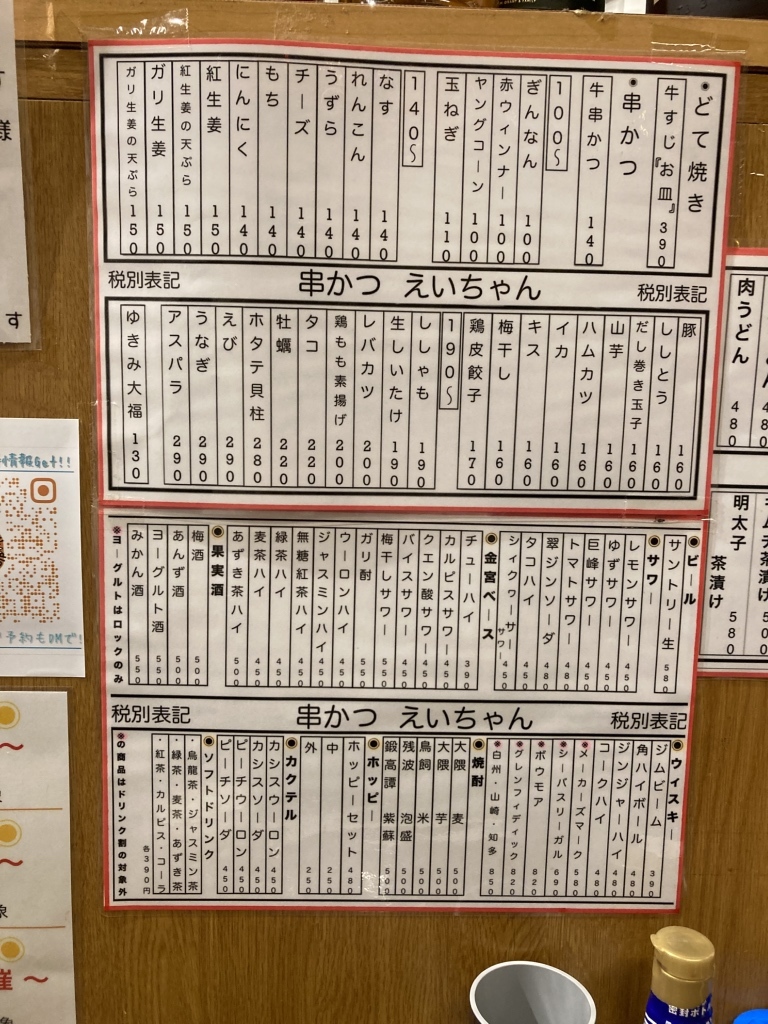 ●どて焼き
牛すじ『お皿』 390
●串かつ
牛串かつ 140
100〜
ぎんなん 100
赤ウィンナー 100
ヤングコーン 100
玉ねぎ 110
140〜
なす 140
れんこん 140
うずら 140
チーズ 140
もち 140
にんにく 140
紅生姜 150
紅生姜の天ぷら 150
ガリ生姜 150
ガリ生姜の天ぷら 150
税別表記 串かつ えいちゃん 税別表記
豚 160
ししとう 160
だし巻き玉子 160
山芋 160
ハムカツ 160
イカ 160
キス 160
梅干し 160
鶏皮餃子 170
190〜
ししゃも 190
生しいたけ 190
レバカツ 200
鶏もも素揚げ 200
タコ 220
牡蠣 220
ホタテ貝柱 280
えび 290
うなぎ 290
アスパラ 290
ゆきみ大福 130
●ビール
サントリー生 580
●サワー
レモンサワー 450
ゆずサワー 450
巨峰サワー 450
トマトサワー 480
翠ジンソーダ 480
タコハイ 450
シィクヮーサーサワー 450
●金宮ベース
チューハイ 390
カルピスサワー 450
クエン酸サワー 450
バイスサワー 450
梅干しサワー 550
ガリ酎 550
ウーロンハイ 450
ジャスミンハイ 450
無糖紅茶ハイ 450
緑茶ハイ 450
麦茶ハイ 450
あずき茶ハイ 500
●果実酒
梅酒 500
あんず酒 500
ヨーグルト酒 550
みかん酒 550
※ヨーグルトはロックのみ
税別表記 串かつ えいちゃん 税別表記
●ウィスキー
ジムビーム
角ハイボール 390
ジンジャーハイ 480
コークハイ 480
※メーカーズマーク 580
※シーバスリーガル 690
※ボウモア 820
※グレンフィディック 820
※白州・山崎・知多 850
●焼酎
大隈 麦 500
大隈 芋 500
鳥飼 米 500
残波 泡盛 500
鍛高譚 紫蘇 500
●ホッピー
ホッピーセット 480
中 250
外 250
●カクテル
カシスウーロン 450
カシスソーダ 450
ピーチウーロン 450
ピーチソーダ 450
●ソフトドリンク
・烏龍茶・ジャスミン茶
・緑茶・麦茶・あずき茶
・紅茶・カルピス・コーラ
各390円
※の商品はドリンク割の対象外
肉うどん 480
明太子 580
茶漬け
様
す
情報Get!!
予約もDMで!
催〜
密封ボトル